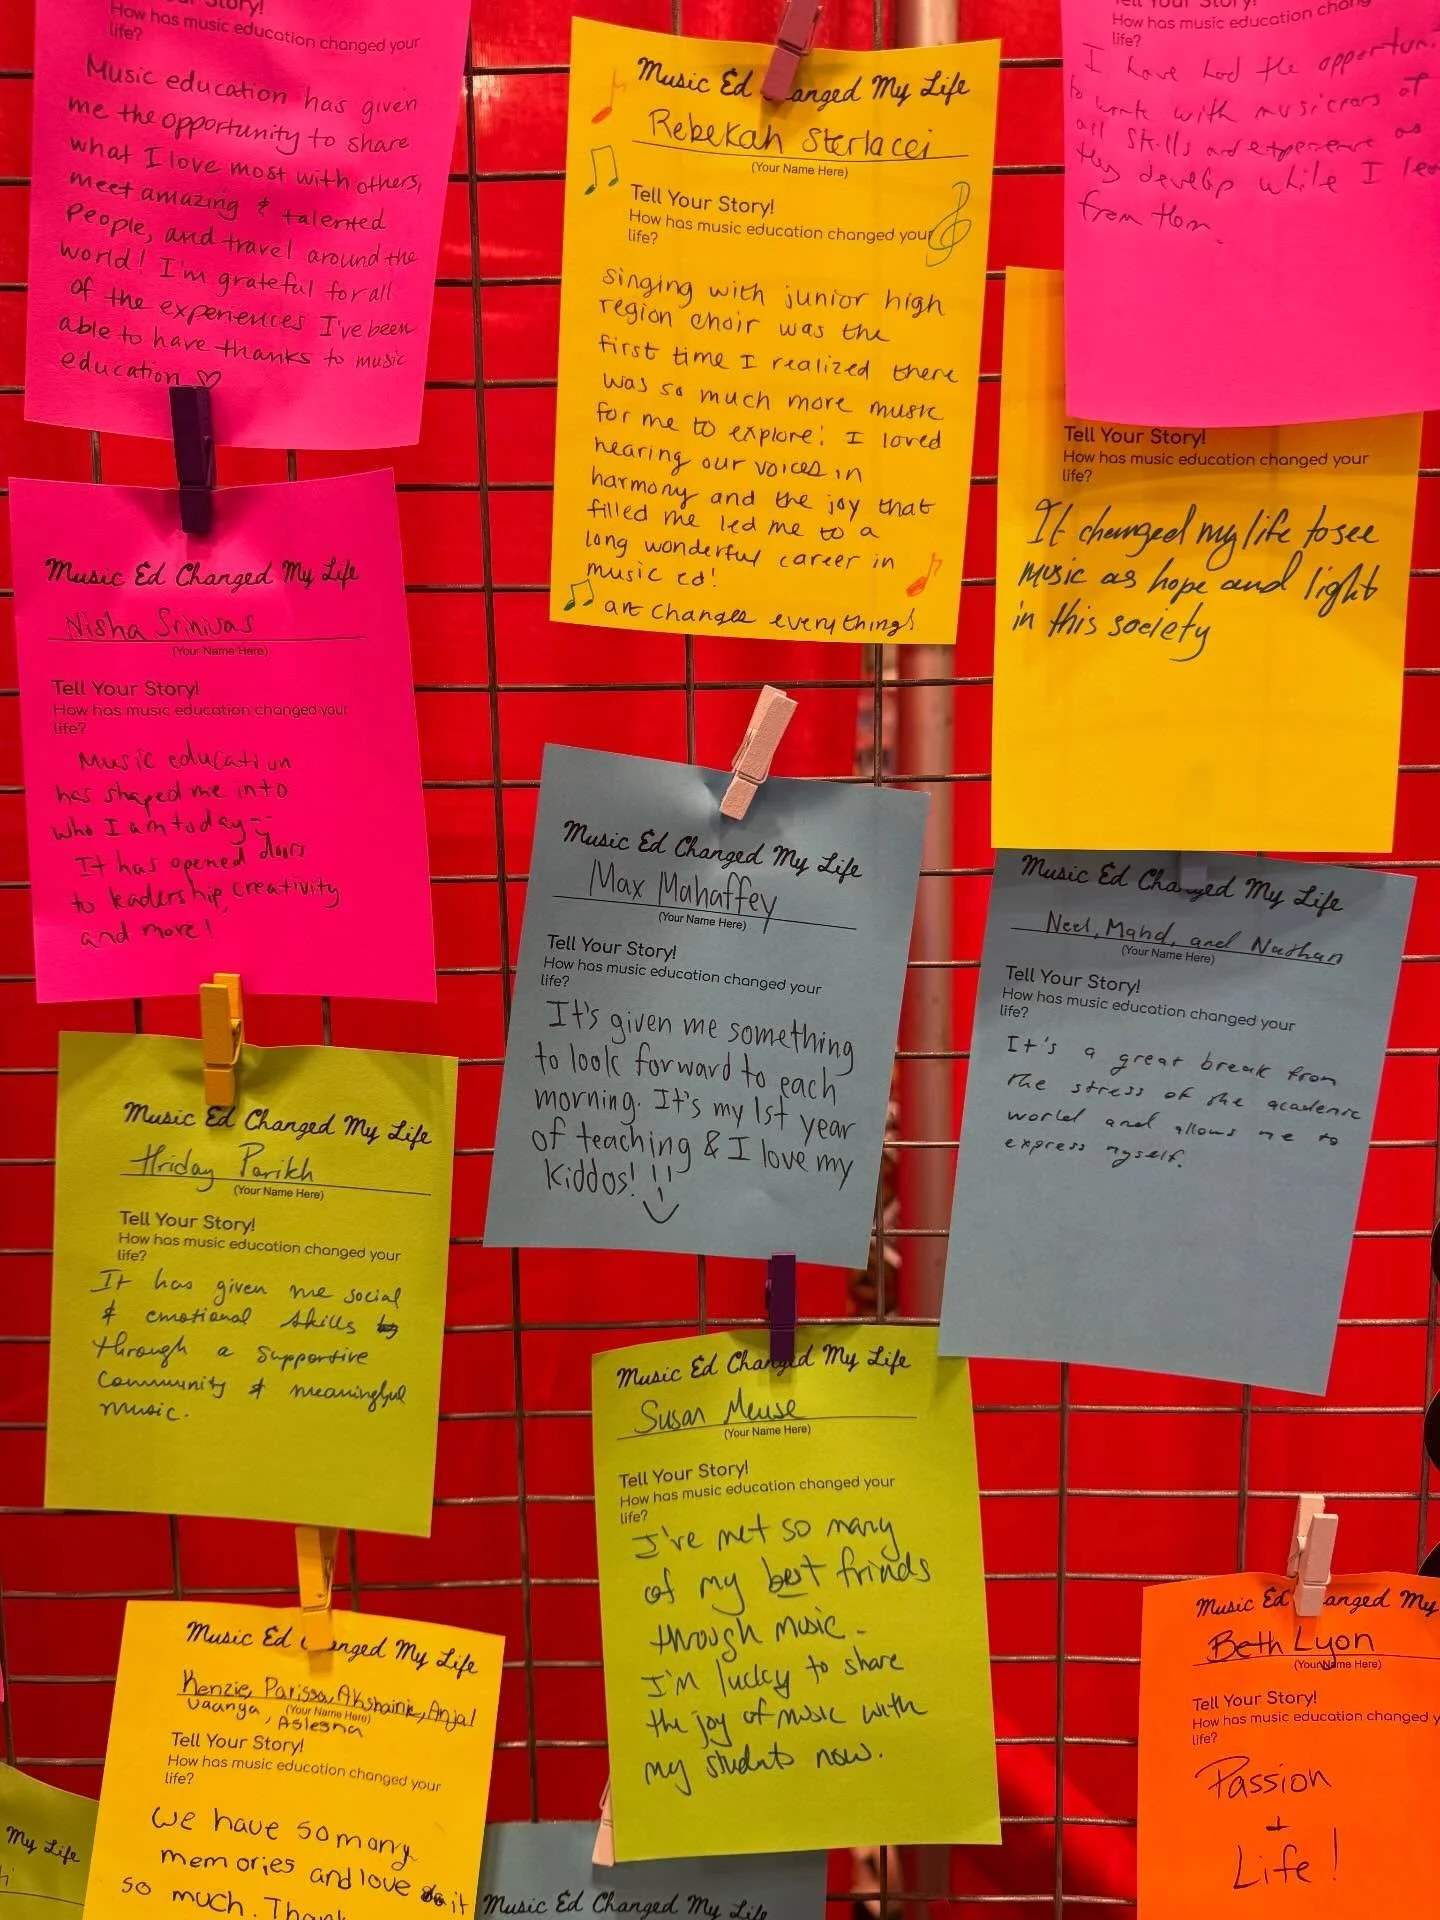 Story!
How has music education changed your
life?
Music education has given
me the opportunity to share
what I love most with others,
meet amazing & talented
people, and travel around the
world! I'm grateful for all
of the experiences I've been
able to have thanks to music
education ♡
Music Ed Changed My Life
Rebekah Sterlacci
(Your Name Here)
Tell Your Story!
How has music education changed your
life?
singing with junior high
region choir was the
first time I realized there
was so much more music
for me to explore! I loved
hearing our voices in
harmony and the joy that
filled me led me to a
long wonderful career in
music ed!
art changes everything!
Tell Your Story!
How has music education chang
life?
I have had the opportuni
to work with musicians at
all skills and experience as
they develop while I lea
from them.
Tell Your Story!
How has music education changed your
life?
It changed my life to see
music as hope and light
in this society
Music Ed Changed My Life
Nisha Srinivas
(Your Name Here)
Tell Your Story!
How has music education changed your
life?
Music education
has shaped me into
who I am today
It has opened doors
to leadership, creativity
and more!
Music Ed Changed My Life
Max Mahaffey
(Your Name Here)
Tell Your Story!
How has music education changed your
life?
It's given me something
to look forward to each
morning. It's my 1st year
of teaching & I love my
kiddos!
Music Ed Changed My Life
Neel, Mahd, and Nathan
(Your Name Here)
Tell Your Story!
How has music education changed your
life?
It's a great break from
the stress of the academic
world and allows me to
express myself.
Music Ed Changed My Life
Hriday Parikh
(Your Name Here)
Tell Your Story!
How has music education changed your
life?
It has given me social
& emotional skills
through a supportive
community & meaningful
music.
Music Ed Changed My Life
Susan Meuse
(Your Name Here)
Tell Your Story!
How has music education changed your
life?
I've met so many
of my best frinds
through music.
I'm lucky to share
the joy of music with
my students now.
Music Ed Changed My Life
Kenzie, Parissa, Akshainie, Anjal
Vaanya, Aslesha
(Your Name Here)
Tell Your Story!
How has music education changed your
life?
We have so many
memories and love it
so much. Thank
Music Ed Changed My
Beth Lyon
(Your Name Here)
Tell Your Story!
How has music education changed y
life?
Passion
+
Life!
My Life
Music Ed Changed My Life